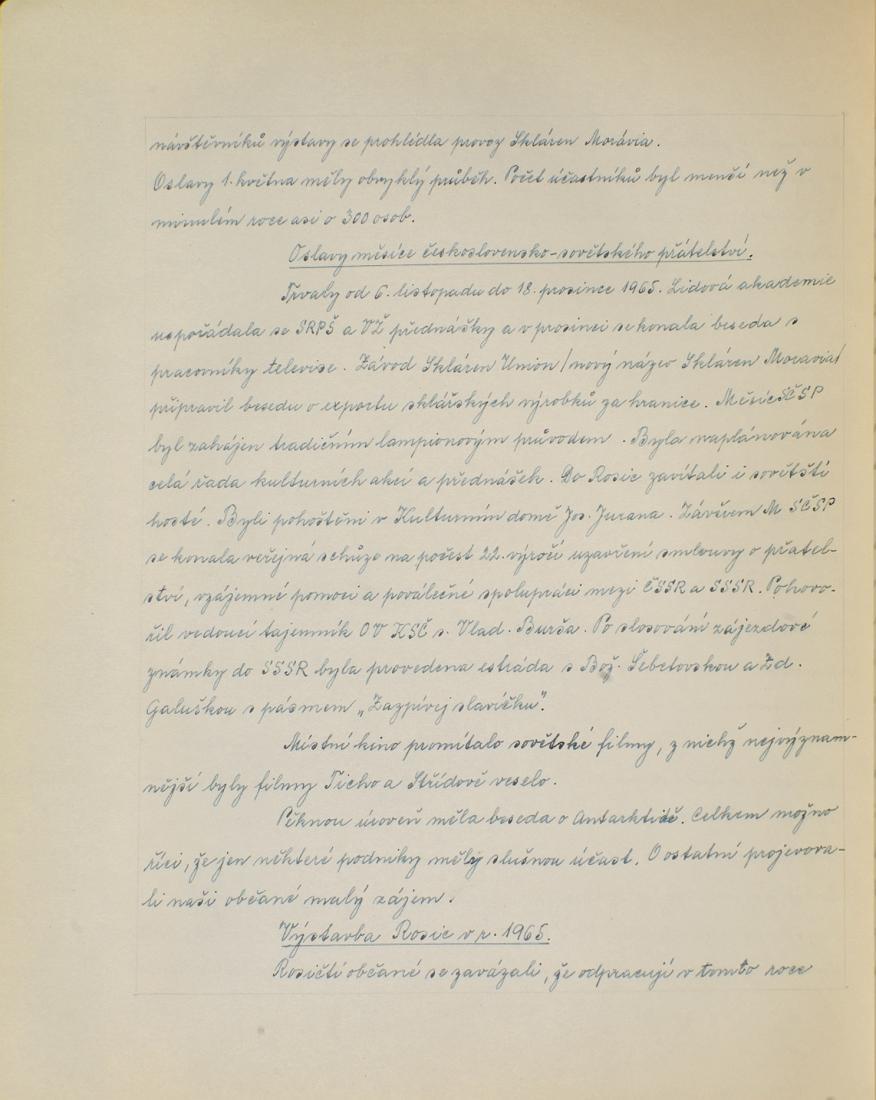 návštěvníků výstavy se prohlédla provoz Skláren Morávia.
Oslavy 1. května měly obvyklý průběh. Počet účastníků byl menší než v
minulém roce asi o 300 osob.
Oslavy měsíce československo-sovětského přátelství.
Trvaly od 6. listopadu do 18. prosince 1965. Lidová akademie
uspořádala se SRPŠ a VŽ přednášky a v prosinci se konala beseda s
pracovníky televise. Závod Skláren Union /nový název Skláren Moravia/
připravil besedu o exportu sklářských výrobků za hranice. Měsíc SČSP
byl zahájen tradičním lampionovým průvodem. Byla naplánována
celá řada kulturních akcí a přednášek. Do Rosic zavítali i sovětští
hosté. Byli pohoštěni v Kulturním domě Jos. Jurana. Závěrem M SČSP
se konala veřejná schůze na počest 22. výročí uzavření smlouvy o přátel-
ství, vzájemné pomoci a poválečné spolupráci mezi ČSSR a SSSR. Pohovo-
řil vedoucí tajemník OV KSČ s. Vlad. Burša. Po slosování zájezdové
známky do SSSR byla provedena estráda s Bož. Šebetovskou a Zd.
Galuškou s pásmem „Zazpívej slavíčku".
Místní kino promítalo sovětské filmy, z nichž nejvýznam-
nější byly filmy Ticho a Střídavě veselo.
Pěknou úroveň měla beseda o Antarktidě. Celkem možno
říci, že jen některé podniky měly slušnou účast. O ostatní projevova-
li naši občané malý zájem.
Výstavba Rosic v r. 1965.
Rosičtí občané se zavázali, že odpracují v tomto roce